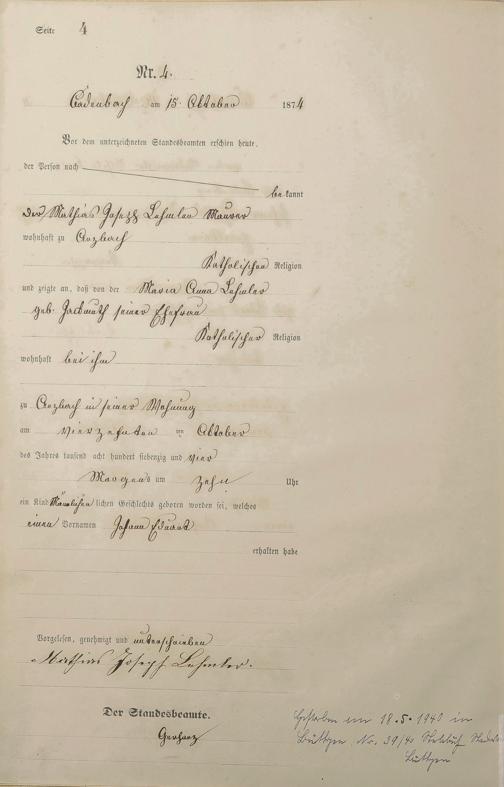 Seite 4
Nr. 4.
Cadenbach am 15. Oktober 1874
Vor dem unterzeichneten Standesbeamten erschien heute,
der Person nach
be kannt
der Mathias Joseph Lehmler Maurer
wohnhaft zu Arzbach
Katholischer Religion
und zeigte an, daß von der Maria Anna Lehmler
geb. seiner Ehefrau
Katholischer Religion
wohnhaft bei ihm
zu Arzbach in seiner Wohnung
am vierzehnten ten Oktober
des Jahres tausend acht hundert siebenzig und vier
Morgens um zehn Uhr
ein Kind männlichen lichen Geschlechts geboren worden sei, welches
einen Vornamen Johann Eduard
erhalten habe
Vorgelesen, genehmigt und unterschrieben
Mathias Joseph Lehmler.
Der Standesbeamte.
Gerharz
Gestorben am 18.5.1940 in
Büttgen Nr. 39/40
Büttgen